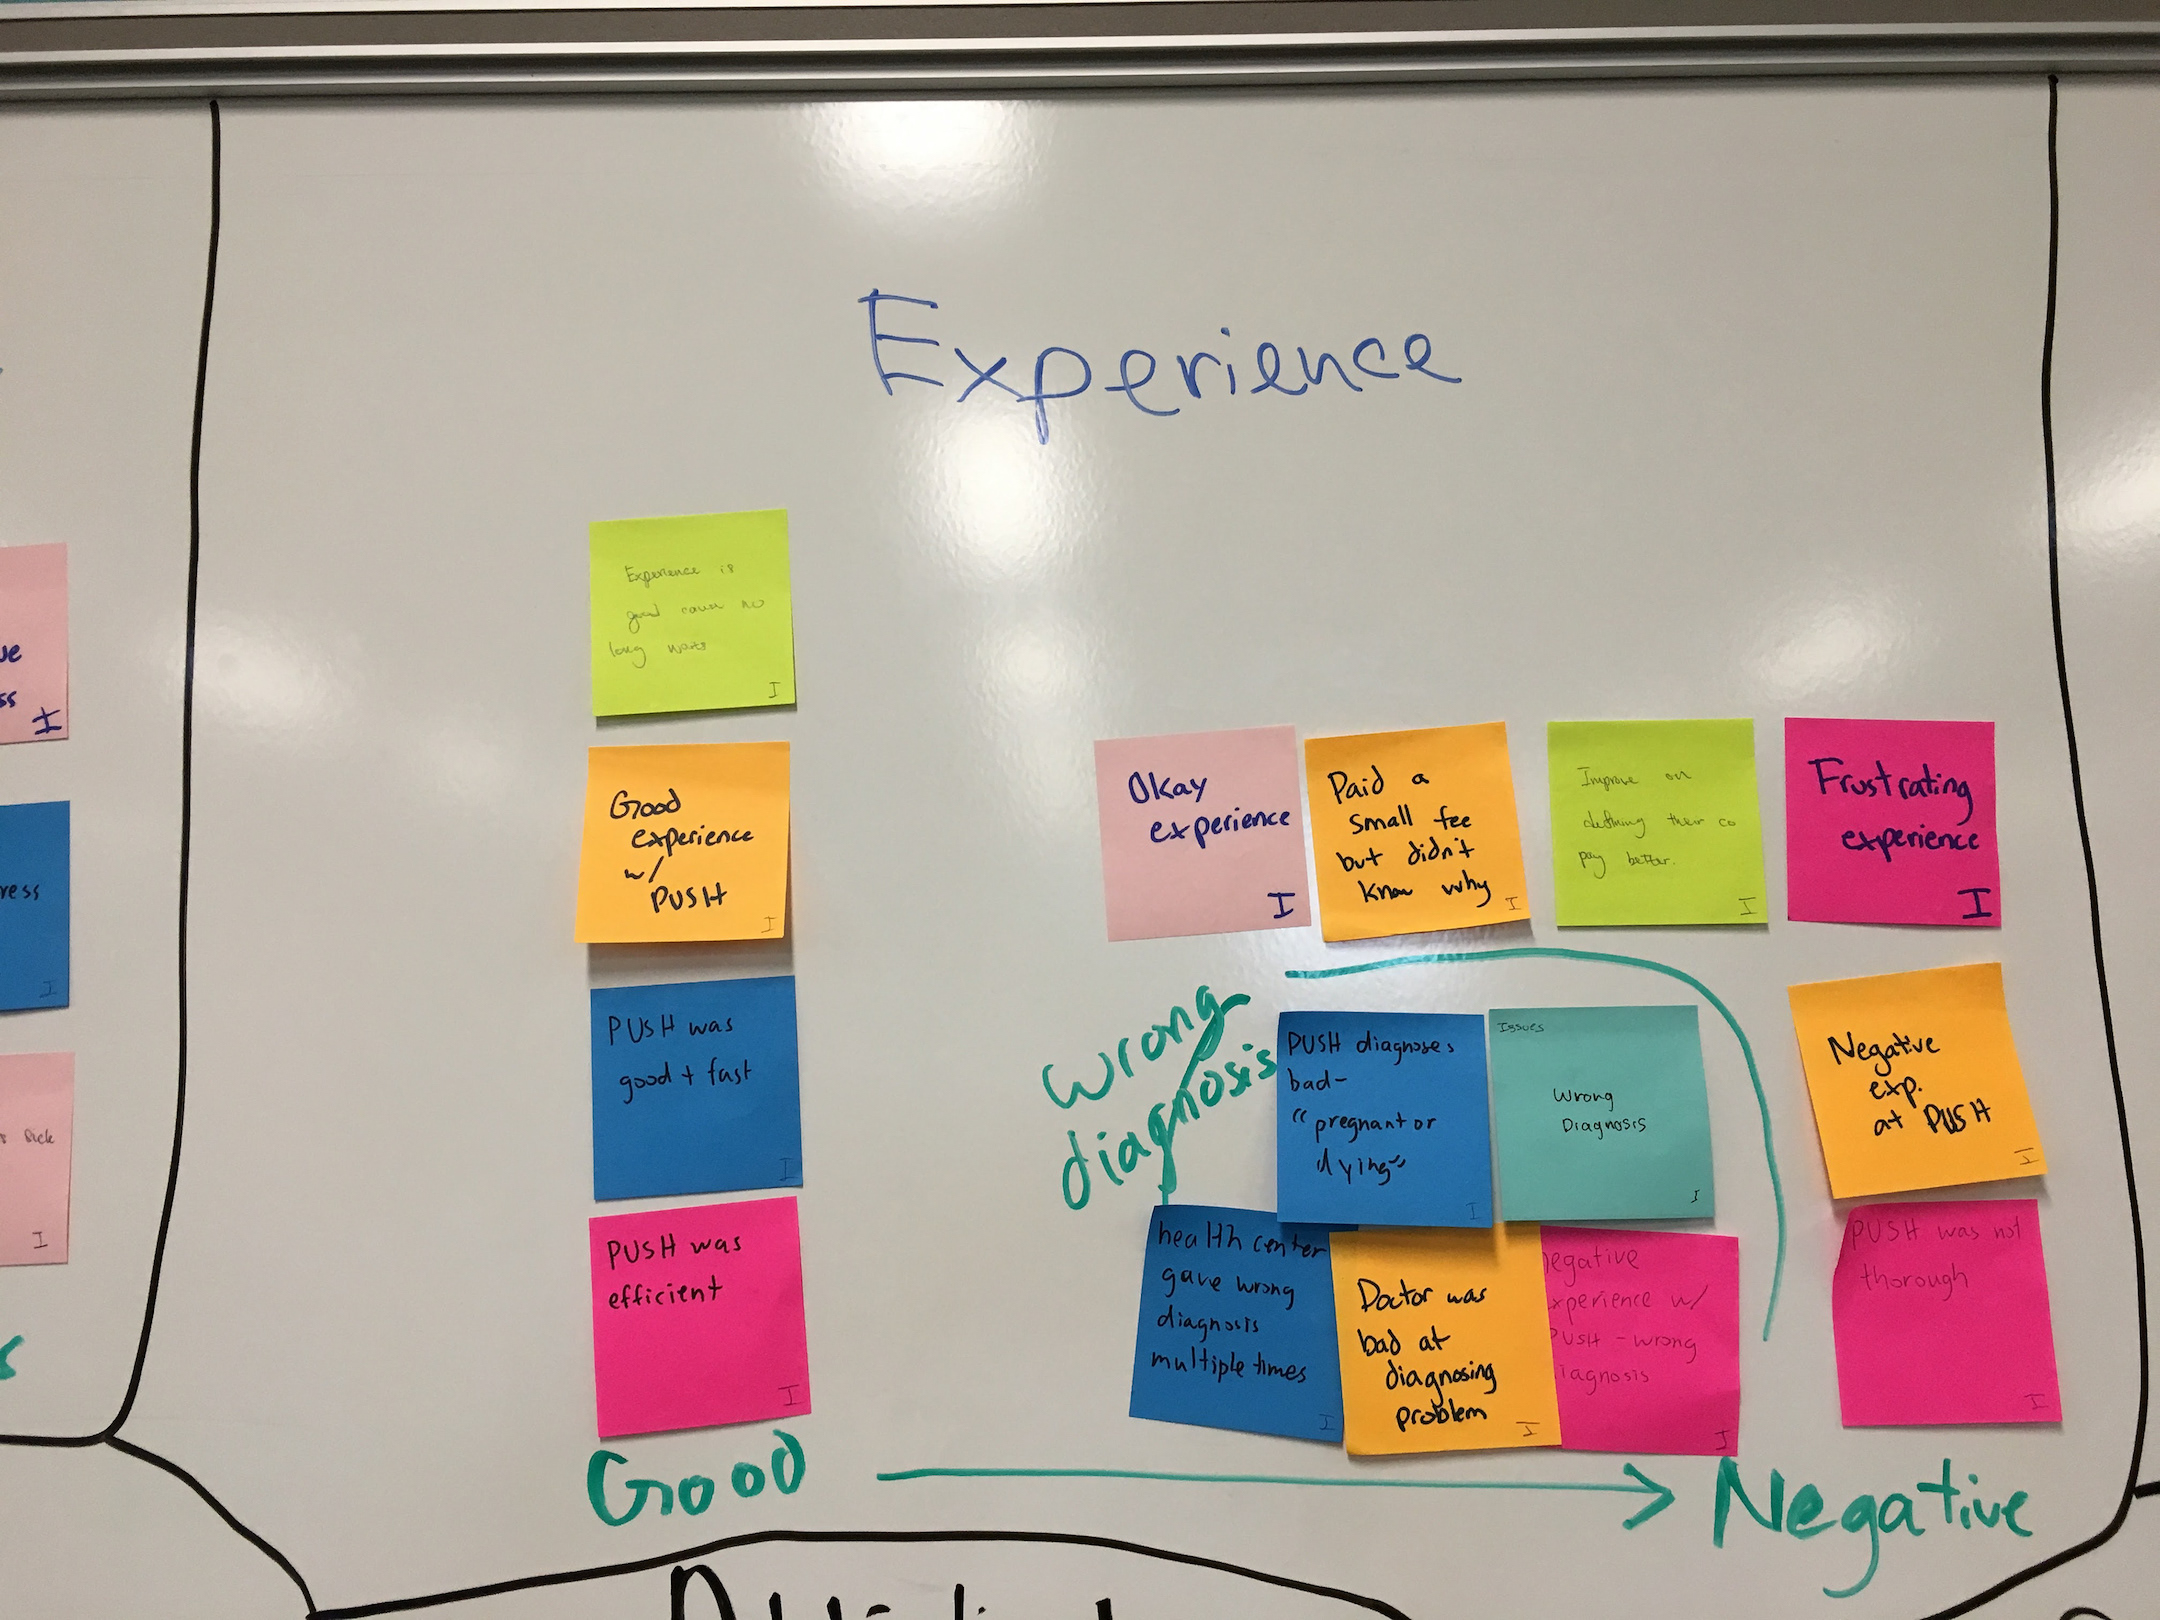 Experience
Experience is
good cause no
long waits
I
Good
experience
w/
PUSH
I
PUSH was
good + fast
I
PUSH was
efficient
I
Okay
experience
I
Paid a
small fee
but didn't
know why
I
Improve on
defining their co
pay better.
I
Frustrating
experience
I
Wrong
diagnosis
PUSH diagnoses
bad-
"pregnant or
dying"
I
Issues
Wrong
Diagnosis
I
Negative
exp.
at PUSH
I
health center
gave wrong
diagnosis
multiple times
I
Doctor was
bad at
diagnosing
problem
I
negative
experience w/
PUSH - wrong
diagnosis
I
PUSH was not
thorough
I
Good
Negative
I
ress
I
sick
I